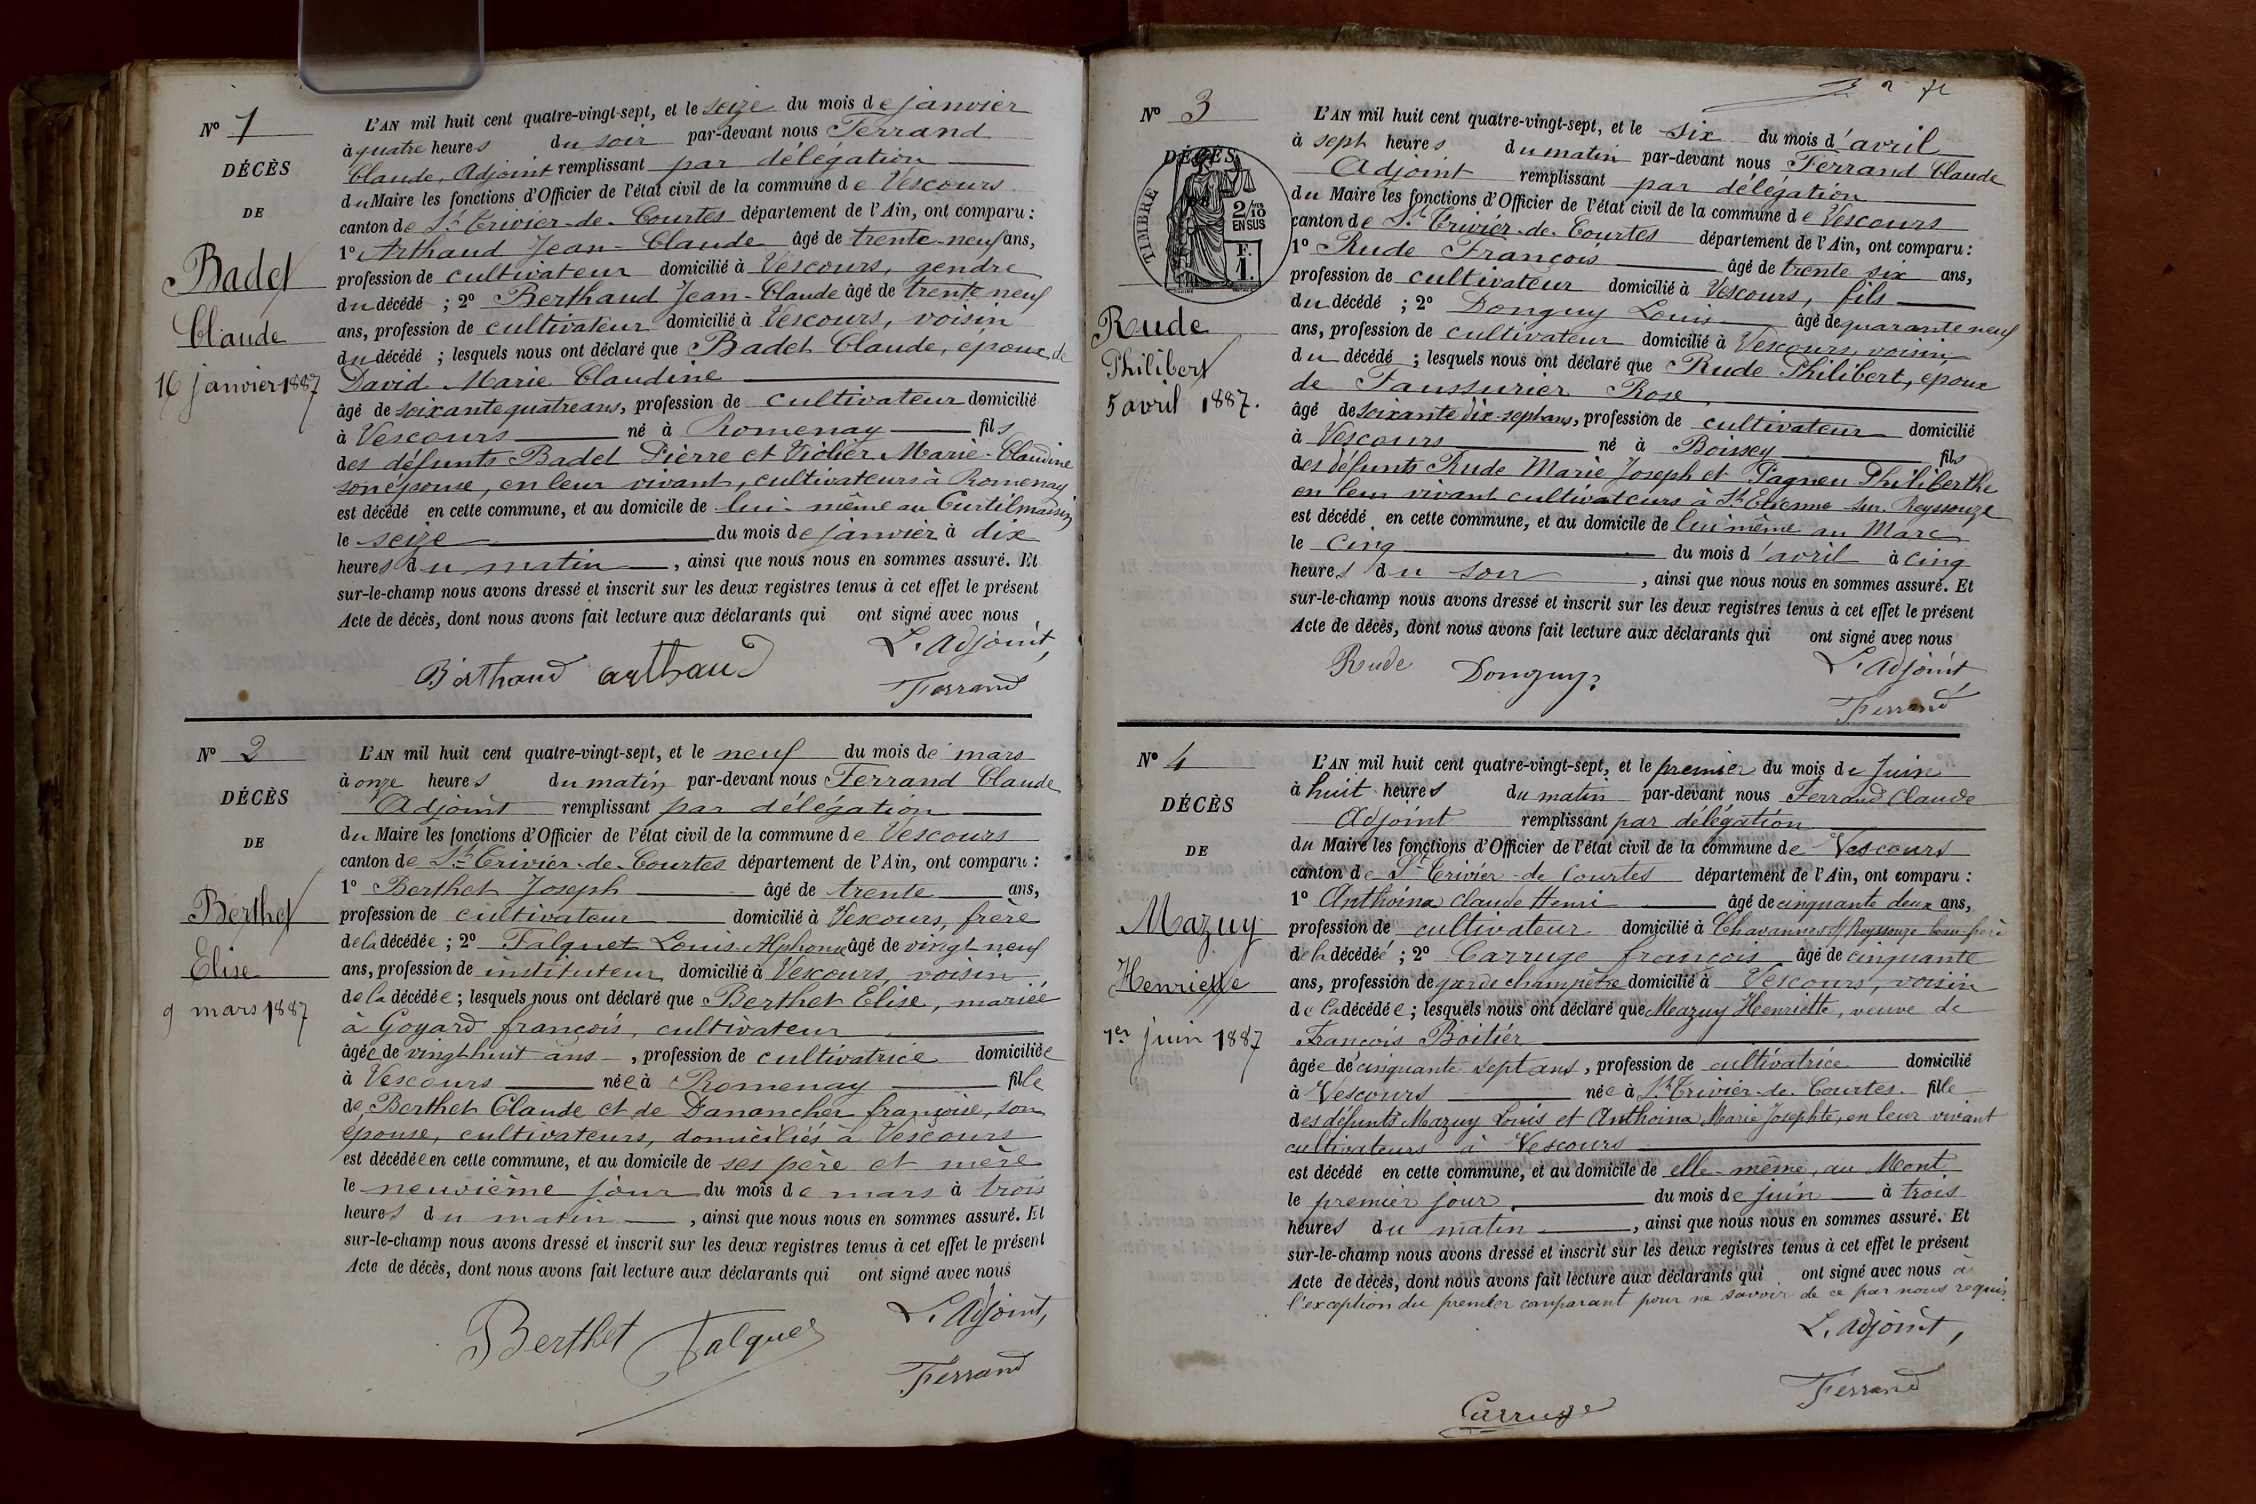 N° 1
DÉCÈS
DE
Badet
Claude
16 janvier 1887
L'AN mil huit cent quatre-vingt-sept, et le seize du mois de janvier
à quatre heures du soir par-devant nous Ferrand
Claude, Adjoint remplissant par délégation
du Maire les fonctions d'Officier de l'état civil de la commune de Vescours
canton de St Trivier-de-Courtes département de l'Ain, ont comparu :
1° Arthaud Jean-Claude âgé de trente-neuf ans,
profession de cultivateur domicilié à Vescours, gendre
du décédé ; 2° Berthaud Jean-Claude âgé de trente neuf
ans, profession de cultivateur domicilié à Vescours, voisin
du décédé ; lesquels nous ont déclaré que Badet Claude, époux de
David Marie Claudine
âgé de soixante quatre ans, profession de cultivateur domicilié
à Vescours né à Romenay fils
des défunts Badet Pierre et Violier Marie-Claudine
son épouse, en leur vivant, cultivateurs à Romenay
est décédé en cette commune, et au domicile de lui-même au Curtilmaisin
le seize du mois de janvier à dix
heures du matin, ainsi que nous nous en sommes assuré. Et
sur-le-champ nous avons dressé et inscrit sur les deux registres tenus à cet effet le présent
Acte de décès, dont nous avons fait lecture aux déclarants qui ont signé avec nous
L'adjoint,
Berthaud arthaud
Ferrand
N° 2
DÉCÈS
DE
Berthet
Elise
9 mars 1887
L'AN mil huit cent quatre-vingt-sept, et le neuf du mois de mars
à onze heures du matin par-devant nous Ferrand Claude
Adjoint remplissant par délégation
du Maire les fonctions d'Officier de l'état civil de la commune de Vescours
canton de St Trivier-de-Courtes département de l'Ain, ont comparu :
1° Berthet Joseph âgé de trente ans,
profession de cultivateur domicilié à Vescours, frère
de la décédée ; 2° Falquet Louis Alphonse âgé de vingt neuf
ans, profession de instituteur domicilié à Vescours voisin
de la décédée ; lesquels nous ont déclaré que Berthet Elise, mariée
à Goyard françois, cultivateur
âgée de vingt huit ans, profession de cultivatrice domiciliée
à Vescours née à Romenay fille
de Berthet Claude et de Danancher françoise, son
épouse, cultivateurs, domiciliés à Vescours
est décédée en cette commune, et au domicile de ses père et mère
le neuvième jour du mois de mars à trois
heures du matin, ainsi que nous nous en sommes assuré. Et
sur-le-champ nous avons dressé et inscrit sur les deux registres tenus à cet effet le présent
Acte de décès, dont nous avons fait lecture aux déclarants qui ont signé avec nous
L'adjoint,
Berthet Falquet
Ferrand
N° 3
DÉCÈS
TIMBRE
2/10
EN SUS
F.
1.
Rude
Philibert
5 avril 1887.
L'AN mil huit cent quatre-vingt-sept, et le six du mois d'avril
à sept heures du matin par-devant nous Ferrand Claude
Adjoint remplissant par délégation
du Maire les fonctions d'Officier de l'état civil de la commune de Vescours
canton de St Trivier-de-Courtes département de l'Ain, ont comparu :
1° Rude François âgé de trente six ans,
profession de cultivateur domicilié à Vescours, fils
du décédé ; 2° Donguy Louis âgé de quarante neuf
ans, profession de cultivateur domicilié à Vescours, voisin
du décédé ; lesquels nous ont déclaré que Rude Philibert, époux
de Faussurier Rose
âgé de soixante dix-sept ans, profession de cultivateur domicilié
à Vescours né à Boissey fils
des défunts Rude Marie Joseph et Pagneu Philiberthe
en leur vivant cultivateurs à St Etienne sur Reyssouze
est décédé en cette commune, et au domicile de lui même au Marc
le cinq du mois d'avril à cinq
heures du soir, ainsi que nous nous en sommes assuré. Et
sur-le-champ nous avons dressé et inscrit sur les deux registres tenus à cet effet le présent
Acte de décès, dont nous avons fait lecture aux déclarants qui ont signé avec nous
Rude Donguy
L'adjoint
Ferrand
N° 4
DÉCÈS
DE
Mazuy
Henriette
1er juin 1887
L'AN mil huit cent quatre-vingt-sept, et le premier du mois de Juin
à huit heures du matin par-devant nous Ferrand Claude
Adjoint remplissant par délégation
du Maire les fonctions d'Officier de l'état civil de la commune de Vescours
canton de St Trivier-de Courtes département de l'Ain, ont comparu :
1° Anthoina Claude Henri âgé de cinquante deux ans,
profession de cultivateur domicilié à Chavannes s/ Reyssouze beau-père
de la décédée ; 2° Carruge françois âgé de cinquante
ans, profession de garde champêtre domicilié à Vescours, voisin
de la décédée ; lesquels nous ont déclaré que Mazuy Henriette, veuve de
François Boitier
âgée de cinquante sept ans, profession de cultivatrice domicilié
à Vescours née à St Trivier-de-Courtes fille
des défunts Mazuy Louis et Anthoina Marie Josephte, en leur vivant
cultivateurs à Vescours
est décédé en cette commune, et au domicile de elle-même, au Mont
le premier jour du mois de juin à trois
heures du matin, ainsi que nous nous en sommes assuré. Et
sur-le-champ nous avons dressé et inscrit sur les deux registres tenus à cet effet le présent
Acte de décès, dont nous avons fait lecture aux déclarants qui ont signé avec nous à
l'exception du premier comparant pour ne savoir de ce par nous requis.
L'adjoint,
Ferrand
Carruge